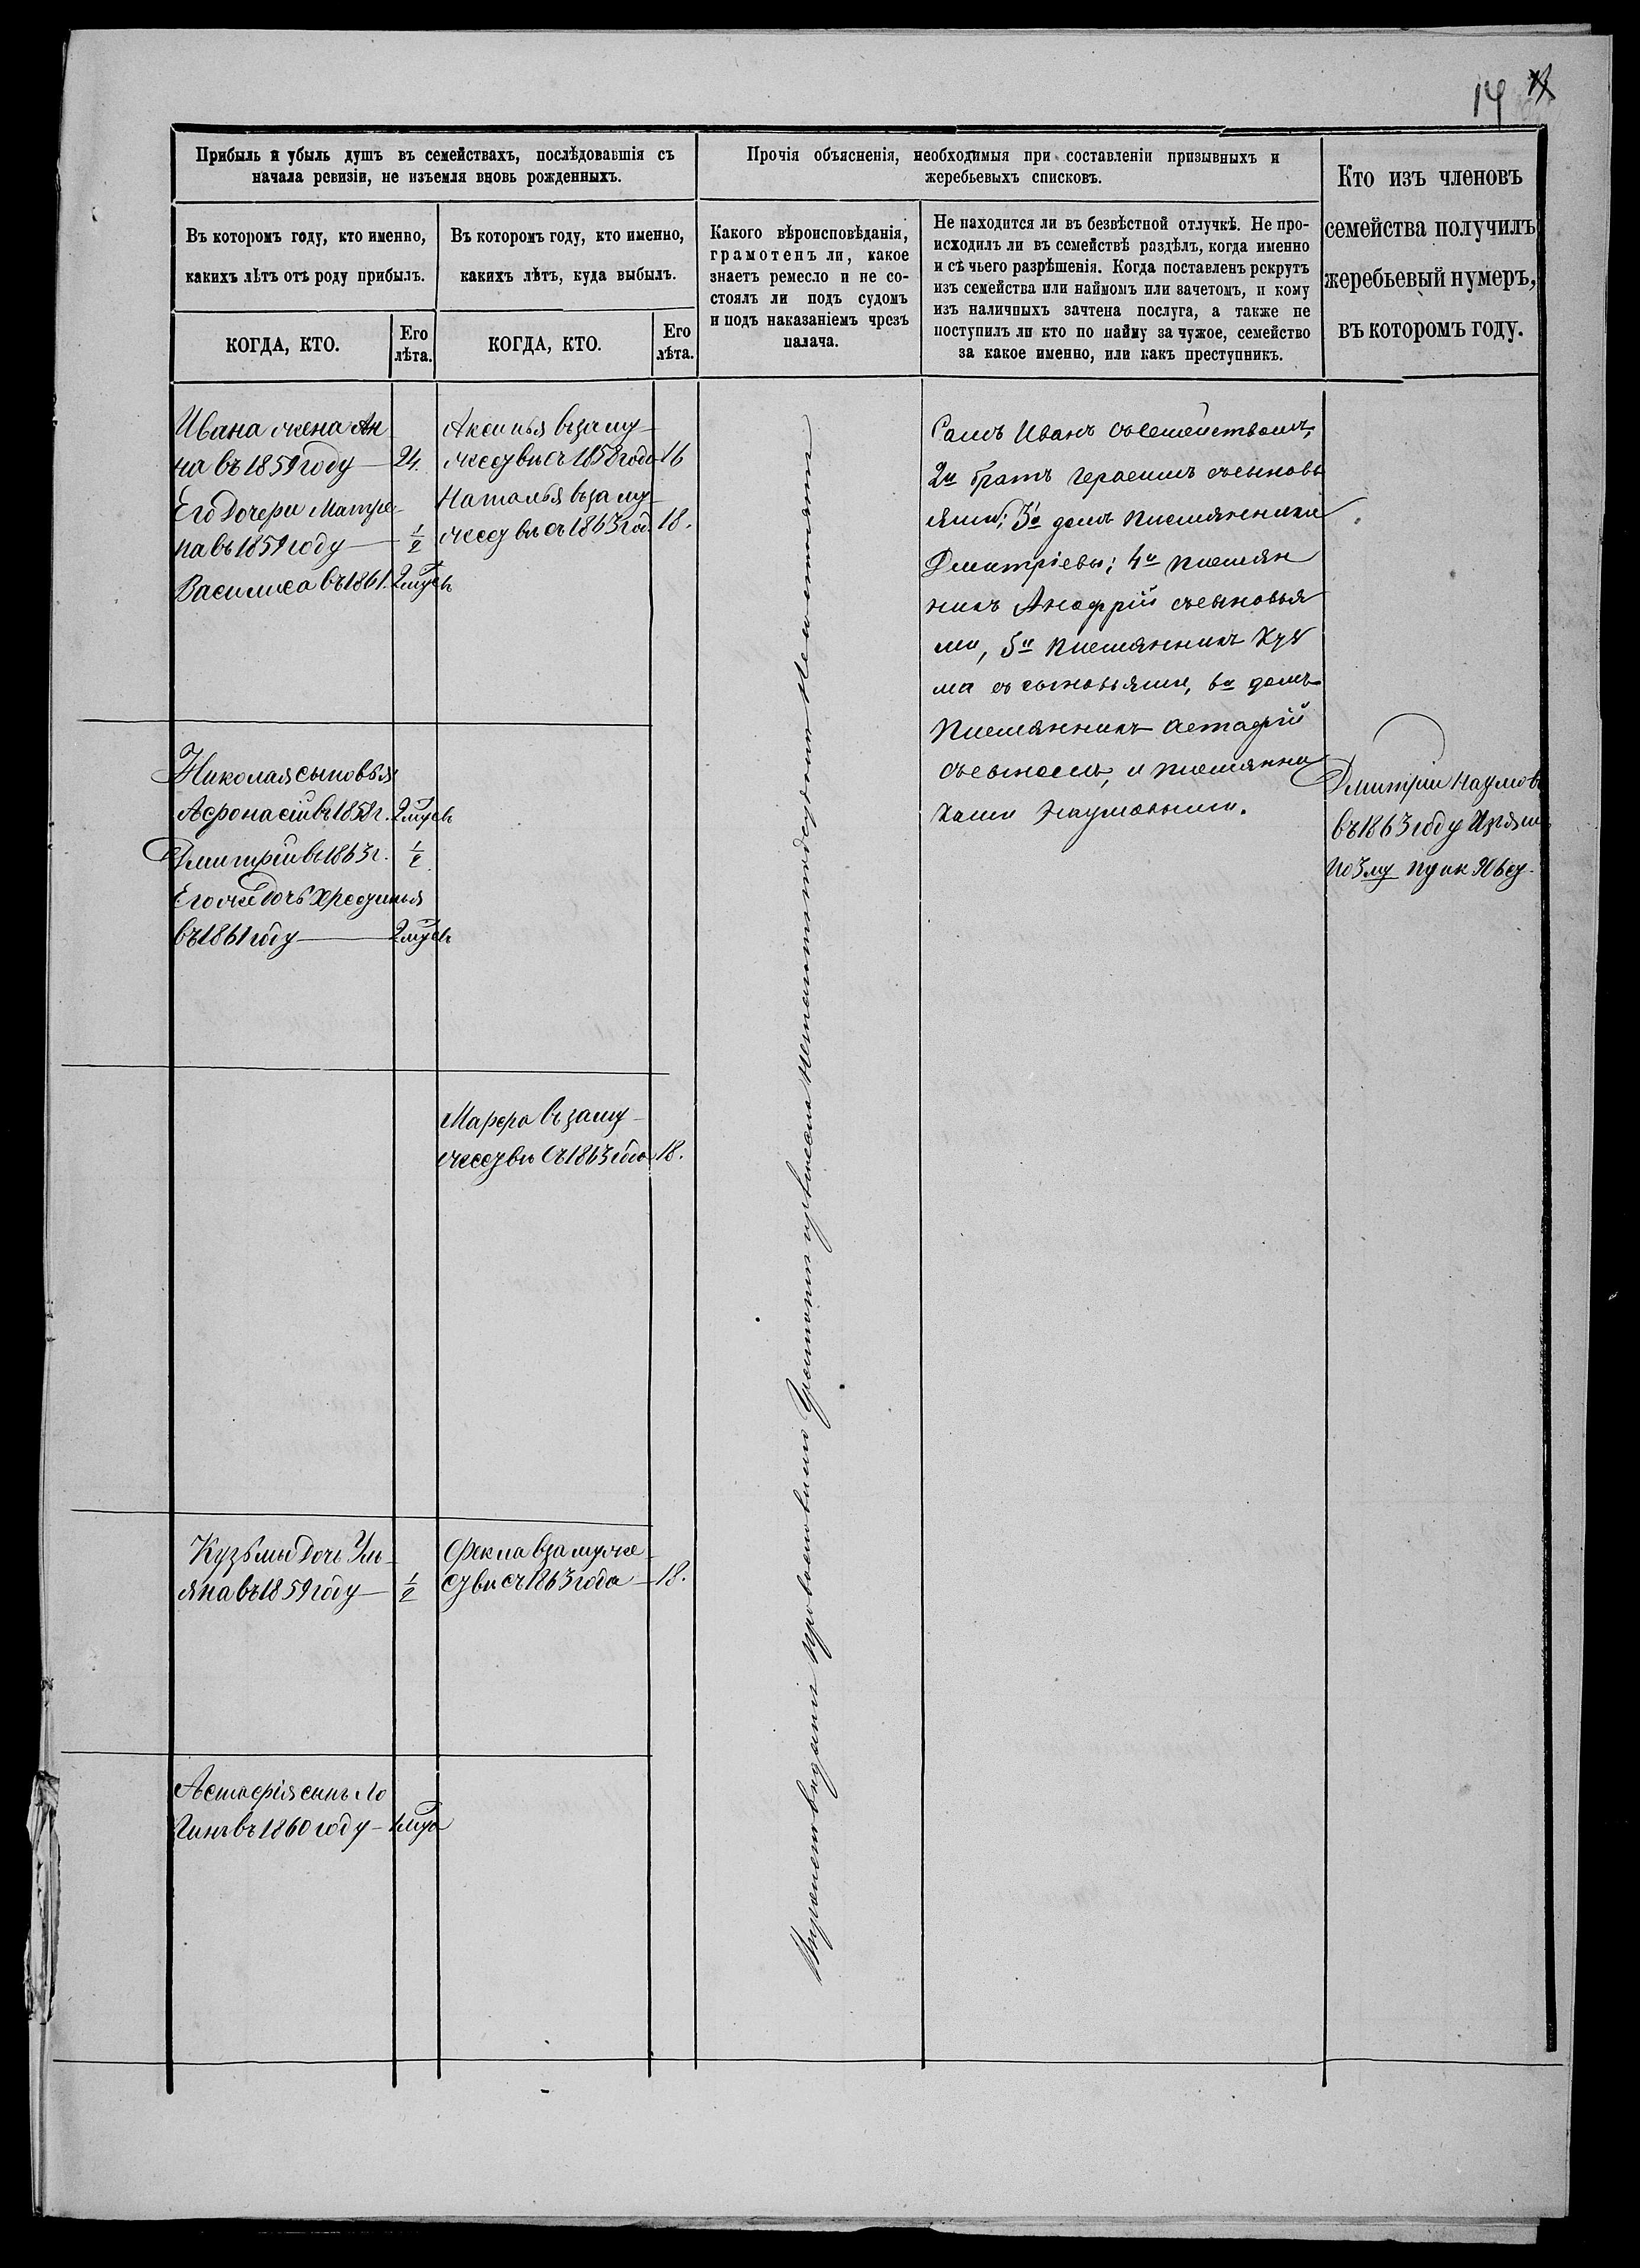 14
Прибыль и убыль душъ въ семействахъ, послѣдовавшія съ
начала ревизіи, не изъемля вновь рожденныхъ.
Прочія объясненія, необходимыя при составленіи призывныхъ и
жеребьевыхъ списковъ.
Кто изъ членовъ
семейства получилъ
жеребьевый нумеръ,
въ которомъ году.
Въ которомъ году, кто именно,
какихъ лѣтъ отъ роду прибылъ.
Въ которомъ году, кто именно,
какихъ лѣтъ, куда выбылъ.
Какого вѣроисповѣданія,
грамотенъ ли, какое
знаетъ ремесло и не со-
стоялъ ли подъ судомъ
и подъ наказаніемъ чрезъ
палача.
Не находится ли въ безвѣстной отлучкѣ. Не про-
исходилъ ли въ семействѣ раздѣлъ, когда именно
и съ чьего разрѣшенія. Когда поставленъ рекрутъ
изъ семейства или наймомъ или зачетомъ, и кому
изъ наличныхъ зачтена послуга, а также не
поступилъ ли кто по найму за чужое, семейство
за какое именно, или какъ преступникъ.
КОГДА, КТО.
Его
лѣта.
КОГДА, КТО.
Его
лѣта.
Ивана жена Ан
на въ 1859 году 24.
Его Дочери Матре-
на въ 1859 году 1/2
Василиса въ 1861.
Николая сыновья
Афонасій въ 1858 г.
Дмитрій въ 1863 г. 1/2
Его же дочь
въ 1861 году
Кузьмы Дочь Уль-
яна въ 1859 году 1/2
Астафія сынъ Ло
гинъ въ 1860 году
Аксинья въ заму-
съ 1858 года 16
Наталья въ заму-
съ 1863 год. 18.
Марфа въ заму-
съ 1863 года 18.
Фекла въ замуже
съ 1863 года 18.
Вѣроисповѣданія православнаго Грамотѣ и ремесла не подсудимы
Самъ Иванъ съ семействомъ,
2й братъ Герасимъ съ сыновь
ями; 3й домъ племянники
Дмитріевы; 4й племян
никъ Анофрій съ сыновья
ми, 5й племянникъ Куз
ма съ сыновьями, 6й домъ
племянникъ Астафій
съ сыномъ, и племянни
ками Наумовыми.
Дмитрій Наумовъ
въ 1863 году
по 3му